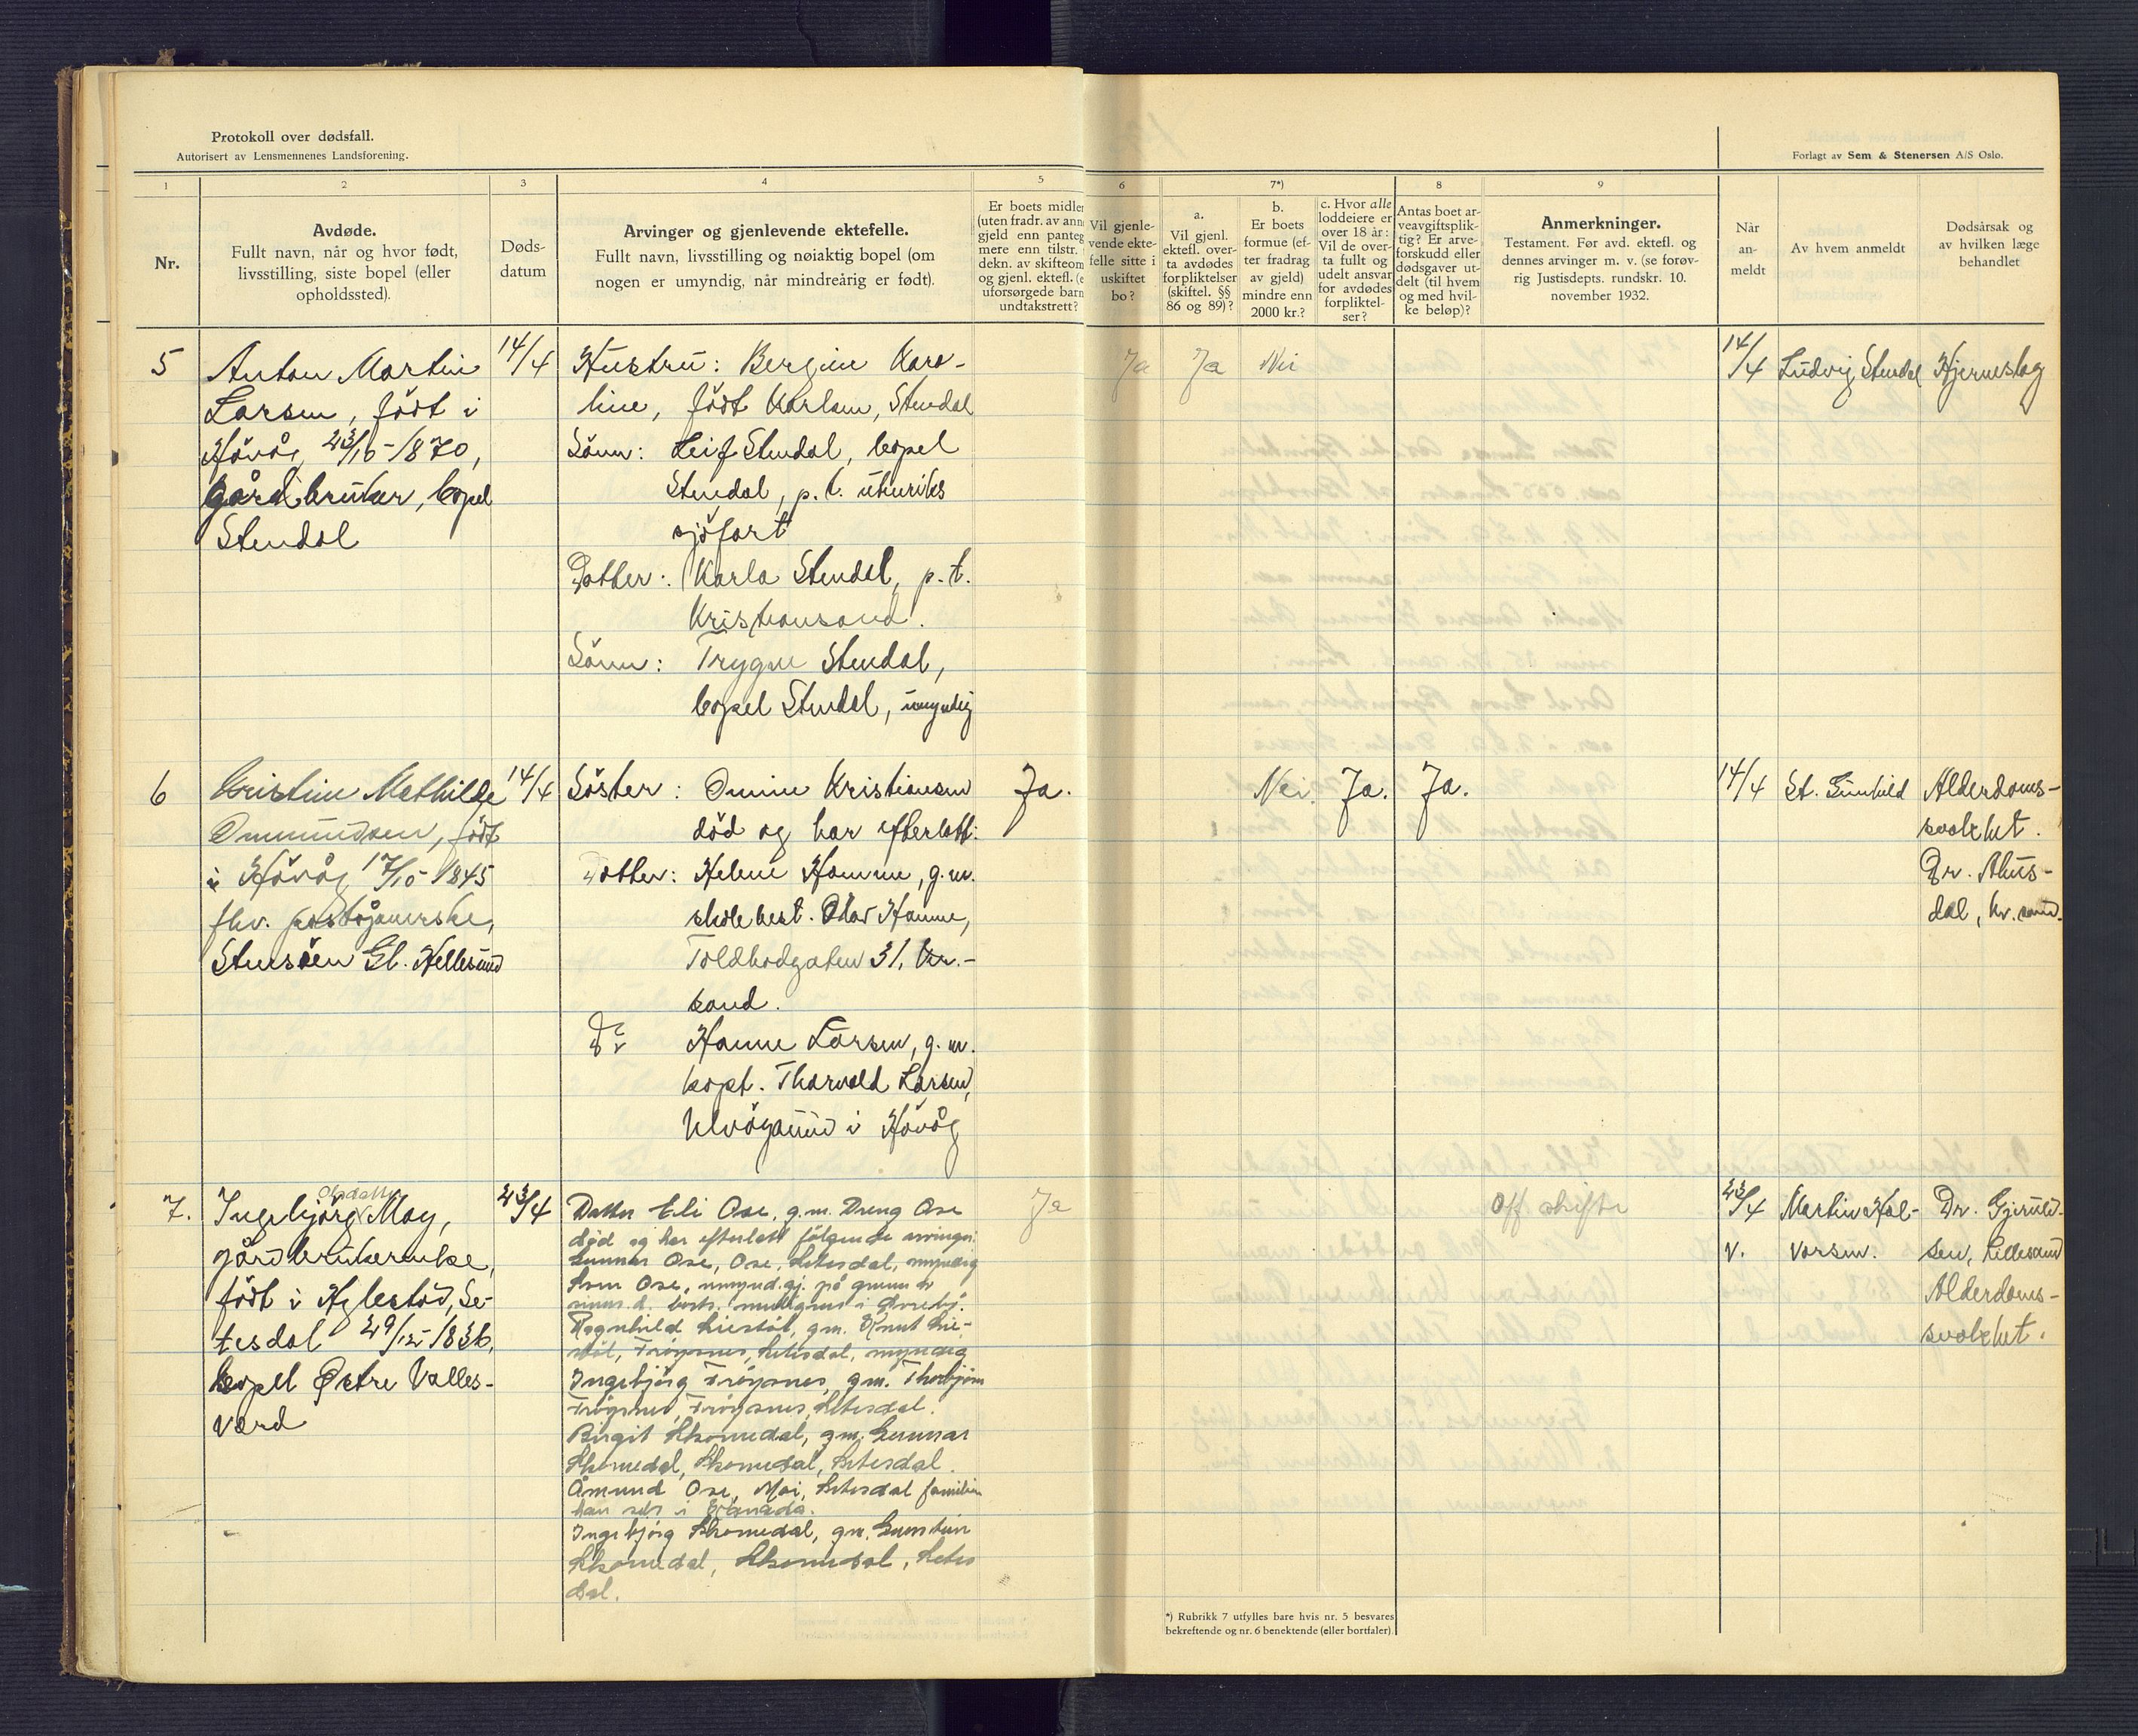 Protokoll over dødsfall.
Autorisert av Lensmennenes Landsforening.
Forlagt av Sem & Stenersen A/S Oslo.
1
2
3
4
5
6
7*)
8
9
Nr.
Avdøde.
Fullt navn, når og hvor født,
livsstilling, siste bopel (eller
opholdssted).
Døds-
datum
Arvinger og gjenlevende ektefelle.
Fullt navn, livsstilling og nøiaktig bopel (om
nogen er umyndig, når mindreårig er født).
Er boets midler
(uten fradr. av ann
gjeld enn panteg
mere enn tilstr.
dekn. av skifteom
og gjenl. ektefl. (e
uforsørgede barn
undtakstrett?
Vil gjenle-
vende ekte-
felle sitte i
uskiftet
bo?
a.
Vil gjenl.
ektefl. over-
ta avdødes
forpliktelser
(skiftel. §§
86 og 89)?
b.
Er boets
formue (ef-
ter fradrag
av gjeld)
mindre enn
2000 kr.?
c. Hvor alle
loddeiere er
over 18 år:
Vil de over-
ta fullt og
udelt ansvar
for avdødes
forpliktel-
ser?
Antas boet ar-
veavgiftsplik-
tig? Er arve-
forskudd eller
dødsgaver ut-
delt (til hvem
og med hvil-
ke beløp)?
Anmerkninger.
Testament. Før avd. ektefl. og
dennes arvinger m. v. (se forøv-
rig Justisdepts. rundskr. 10.
november 1932.
Når
an-
meldt
Av hvem anmeldt
Dødsårsak og
av hvilken læge
behandlet
5
Anton Martin
Larsen, født i
Høvåg 23/10-1870,
gårdbruker, bopel
Stendal
14/4
Hustru: Bergine Karo-
line, født Karlsen, Stendal
Sønn: Leif Stendal, bopel
Stendal, p.t. utenriks
sjøfart
Datter: Karla Stendal, p.t.
Kristiansand.
Sønn: Trygve Stendal,
bopel Stendal, umyndig
Ja
Ja
Nei
14/4
Ludvig Stendal
Hjerneslag
6
Kristine Mathilde
Ommundsen, født
i Høvåg 17/10-1845
fhv. postå
Gl. Hellesund
14/4
Søster: Kristiansen
død og har efterlatt:
Datter: Helene Hamme, g.m.
skolebest. Olav Hamme,
Toldbodgaten 31, Kr.-
sand.
Hanne Larsen, g.m.
kapt. Thorvald Larsen,
Ulvøysund i Høvåg
Ja.
Nei.
Ja.
Ja.
14/4
St. Gunhild
Alderdoms-
svakhet.
Dr.
dal, Kr.sand.
7.
Olsdatter
Ingebjørg May,
gårdbrukerenke,
født i Hylestad, Se-
tesdal 29/12-1836,
bopel Østre Valles-
værd
23/4
Datter Eli Ose, g.m. Dreng Ose
død og har efterlatt følgende arvinger:
Gunnar Ose, Ose, Setesdal, myndig
Ose, umynd.gj. på grunn av
Ragnhild Liestøl, gm. Knut Lie-
støl, Frøysnes, Setesdal, myndig
Ingebjørg Frøysnes, gm. Thorbjørn
Frøysnes, Frøysnes, Setesdal.
Birgit Skomedal, gm. Gunnar
Skomedal, Skomedal, Setesdal.
Åmund Ose, Moi, Setesdal familien
han selv i Canada.
Ingebjørg Skomedal, gm. Gunstein
Skomedal, Skomedal, Setes
dal.
Ja
Off skifte
23/4
Martin Hal-
v. vorsen.
Dr. Gjeruld-
sen, Lillesand
Alderdoms-
svakhet.
*) Rubrikk 7 utfylles bare hvis nr. 5 besvares
bekreftende og nr. 6 benektende (eller bortfaler).